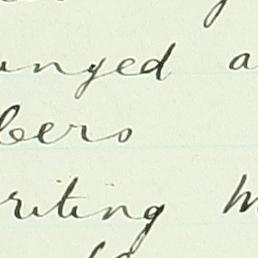 unged a
bers
riting